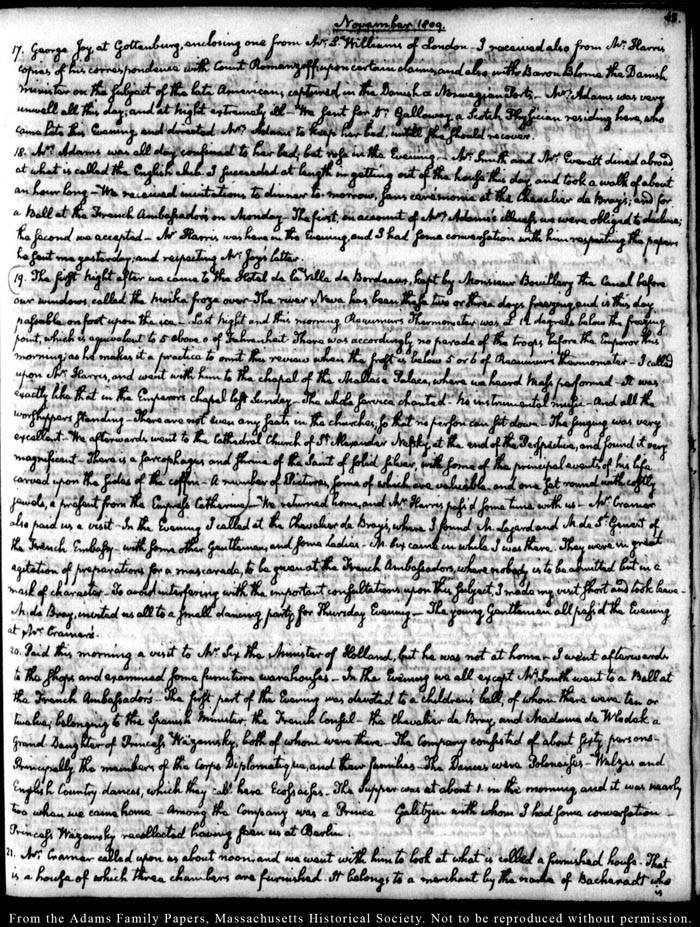 November 1809.
48.
17. George Joy, at Gottenburg, enclosing one from Mr. S. Williams of London - I received also from Mr. Harris
copies of his correspondence with Count Romanzoff upon certain claims, and also with Baron Blome the Danish
minister on the subject of the late Americans, captured in the Danish & Norwegian Ports - Mrs. Adams was very
unwell all this day; and at Night extremely ill - We sent for Dr. Galloway, a Scotch Physician residing here, who
came late this Evening and directed Mrs. Adams to keep her bed, untill she should recover.
18. Mrs. Adams was all day confined to her bed; but rose in the Evening - Mr. Smith and Mr. Everett dined abroad
at what is called the English club. I succeeded at length in getting out of the house this day, and took a walk of about
an hour long - We received invitations to dinner to-morrow, sans ceremonie at the Chevalier de Bray's; and for
a Ball at the French Ambassador's on Monday - The first, on account of Mrs. Adams's illness we were obliged to decline;
the second we accepted - Mr. Harris was here in the Evening, and I had some conversation with him respecting the papers
he sent me yesterday; and respecting Mr. Joy's letter.
19. The first Night after we came to the Hotel de la Ville de Bordeaux, kept by Monsieur Bouillery the Canal before
our windows, called the Moika froze over - The river Neva has been these two or three days freezing, and is this day
passable on foot upon the ice - Last Night and this morning Reaumur's Thermometer was at 12 degrees below the freezing
point, which is equivalent to 5 above 0 of Fahrenheit There was accordingly no parade of the troops before the Emperor this
morning; as he makes it a practice to omit this review when the frost is below 5 or 6 of Reaumur's thermometer - I called
upon Mr. Harris, and went with him to the chapel of the Maltese Palace, where we heard Mass performed - It was
exactly like that in the Emperor's chapel last Sunday - The whole service chanted - No instrumental music - And all the
worshippers standing - There are not even any seats in the churches; so that no person can sit down - The singing was very
excellent - We afterwards went to the Cathedral Church of St. Alexander Nefsky, at the end of the Perspective, and found it very
magnificent - There is a sarcophagus and shrine of the Saint of solid silver, with some of the principal events of his life
carved upon the sides of the coffin - A number of Pictures, some of which are valuable, and one set round with costly
jewels, a present from the Empress Catherine) - We returned home, and Mr. Harris pass'd some time with us - Mr. Cramer
also paid us a visit - In the Evening I called at the Chevalier de Bray's, where I found M. Lajard and M. de St. Genest of
the French Embassy - with some other Gentlemen, and some Ladies - M. Six came in while I was there. They were in great
agitation of preparations for a mascarade, to be given at the French Ambassador's, where nobody is to be admitted but in a
mask of character - To avoid interfering with the important consultations upon this subject, I made my visit short and took leave -
M. de Bray, invited us all to a small dancing party for Thursday Evening - The young Gentlemen all pass'd the Evening
at Mr. Cramer's.
20. Paid this morning a visit to Mr. Six the Minister of Holland, but he was not at home - I went afterwards
to the shops and examined some furniture warehouses - In the Evening we all except Mr. Smith went to a Ball at
the French Ambassador's - The first part of the Evening was devoted to a children's ball, of whom there were ten or
twelve, belonging to the Spanish Minister, the French Consul - the Chevalier de Bray, and Madame de Wlodek a
Grand Daughter of Princess Wiazemsky, both of whom were there - The Company consisted of about sixty persons -
Principally the members of the Corps Diplomatique, and their families - The Dances were Polonaises - Walzes and
English Country dances, which they call here Ecossaises - The Supper was at about 1 in the morning, and it was nearly
two when we came home - Among the Company was a Prince Galitzin with whom I had some conversation -
Princess Wiazemsky recollected having seen us at Berlin.
21. Mr. Cramer called upon us about noon, and we went with him to look at what is called a furnished house. That
is a house of which three chambers are furnished. It belongs to a merchant by the name of Bacheracht who
is
From the Adams Family Papers, Massachusetts Historical Society. Not to be reproduced without permission.